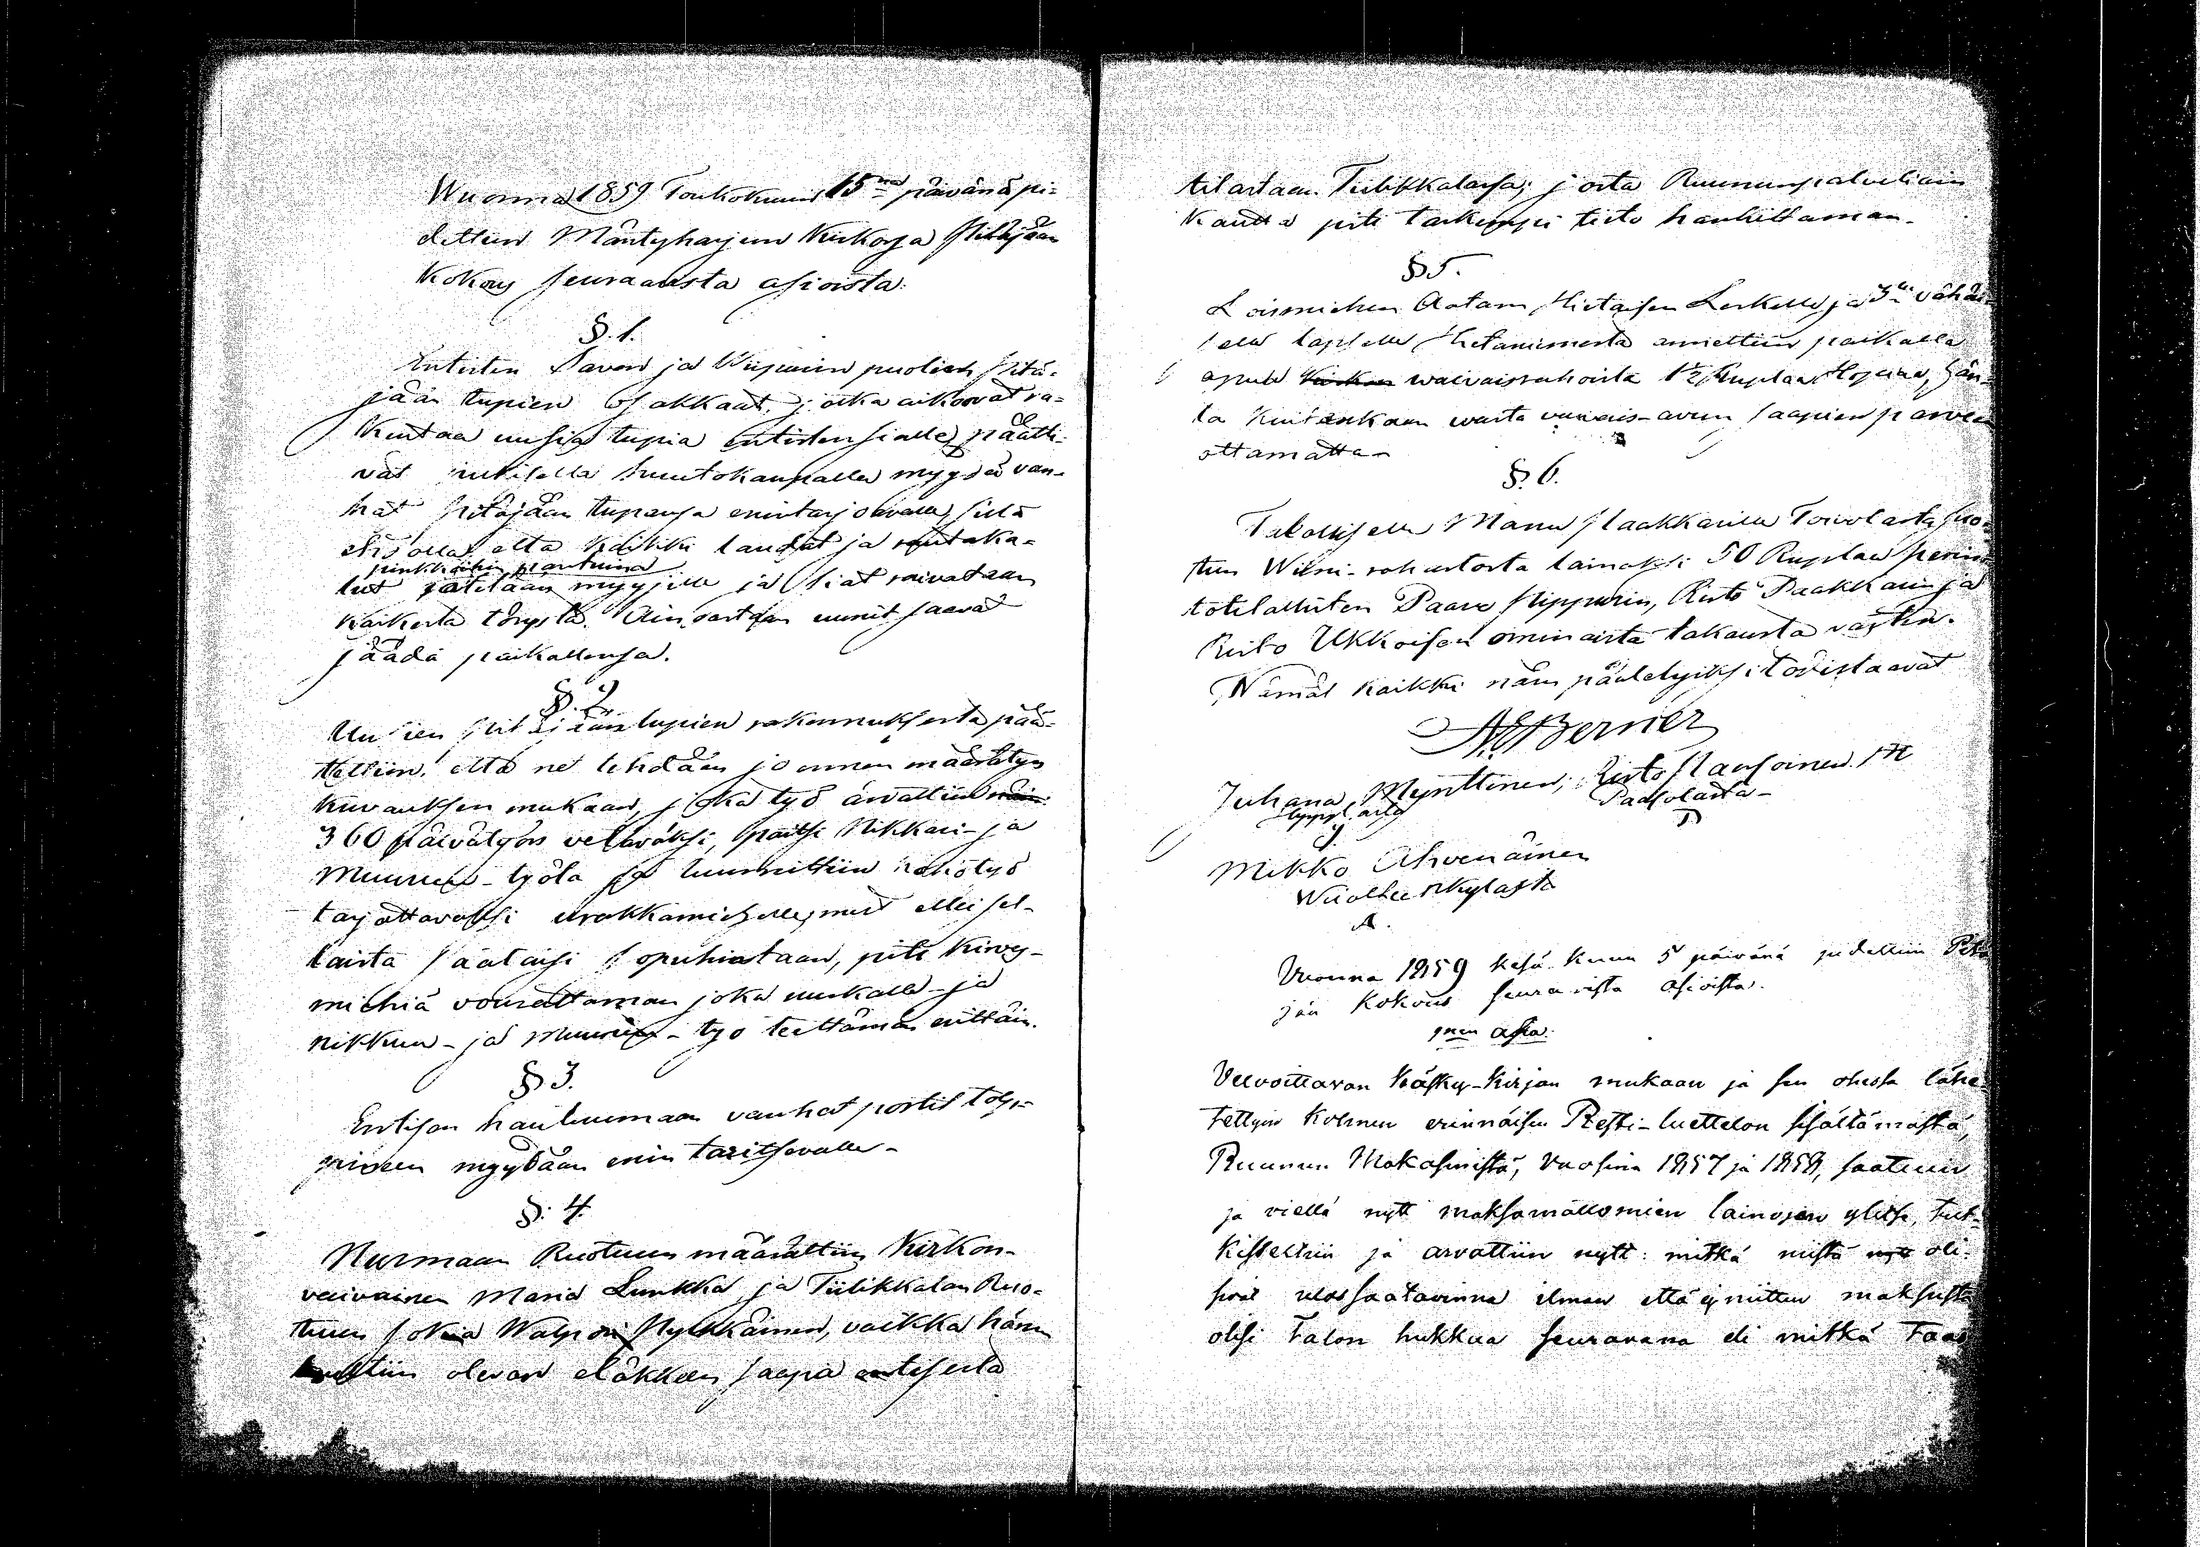 Wuonna 1859 Toukokuun 15na pävänä pi-
dettiin Mäntyharjun Kirkosa Pitäjään
Kokous seuraavista asioista.
§. 1.
Entisten Savon ja Wiipurin puolien pitä-
jään tupien osakkaat, jotka aikoovat ra-
kentaa uusia tupia entisten sialle, päätti-
vät julkisella huutokaupalla myydä van-
hat pitäjään tupansa enintarjoavalle, sillä
ehdolla että kaikki laudat ja
pinkkoihin pantuina
lut jätetään myyjille ja siat raivataan
kaikesta törystä. Ainoastaan uunit saavat
jäädä paikallensa.
§. 2.
Uusien pitäjääntupien rakennuksesta pää-
tettiin: että ne tehdään jo ennen määrätyn
kuvauksen mukaan, joka työ arvattiin
360 päivätyön veltaväksi, paitsi Nikkari- ja
Muurin-työtä ja luunnittiin
tarjottavaksi urakkamiehelle, mut ellei sel-
laista säätäisi sopuhintaan, piti kirves-
miehiä vourattaman joka nurkalle ja
nikkun- ja Muurin-työ teettämän erittäin.
§ 3.
Entisen hautuumaan vanhat portit tölp-
pineen myydään enin taritsevalle -
§. 4.
Nurmaan Ruotuun määrättiin Kirkon-
vaivainen Maria Lunkka ja Tiilikkalan Ruo-
tuun sokia Walpori Nykkäinen, vaikka hänen
olevan eläkkeen saapa entisestä
tilastaan Tiilikkalassa; josta Ruununpalveliain
Kautta piti tarkempi tieto hankittaman.
§ 5.
Loismiehen Aatam Hietaisen Leskelle ja 3lle vähäi-
selle lapselle Hietaniemestä annettiin paikalla
apua Kirkon waivaisrahoista 1½ Ruplaa Hopeaa, hän-
tä kuitenkaan wasta vaivais-avun saapien parveen
ottamatta -
§. 6.
Talollisella Manu Haakkarilla Toivolasta suo-
tiin Wilni-rahastosta lainaksi 50 Ruplaa perin-
tötilallisten Paavo Hippurin, Risto Paakkarin ja
Risto Ukkoisen ominaista takausta vasten.
Nämät kaikki näin päätetyiksi todistaavat
Juhana Mynttinen, Risto Hansoinen
Paasolasta -
Mikko Ahvenainen
Vuonna 1859 kesä-kuun 5 päivänä pidettiin Pitä
jän kokous seuravista asioista.
1nen asia.
Velvoittavan Käsky-Kirjan mukaan ja sen ohesta lähe-
tettyin kolmen erinnäisen Resti-luettelon sisältämästä,
Ruunun Makasinistä, vuosina 1857 ja 1858, saatuin
ja viellä nytt maksamattomien lainojen ylitse, tut-
kisteltiin ja arvattiin nytt: mitkä niistä nytt oli-
sivat ulossaatavinna ilman että ej niitten maksusta
olisi talon hukkua seuravana eli mitkä taas